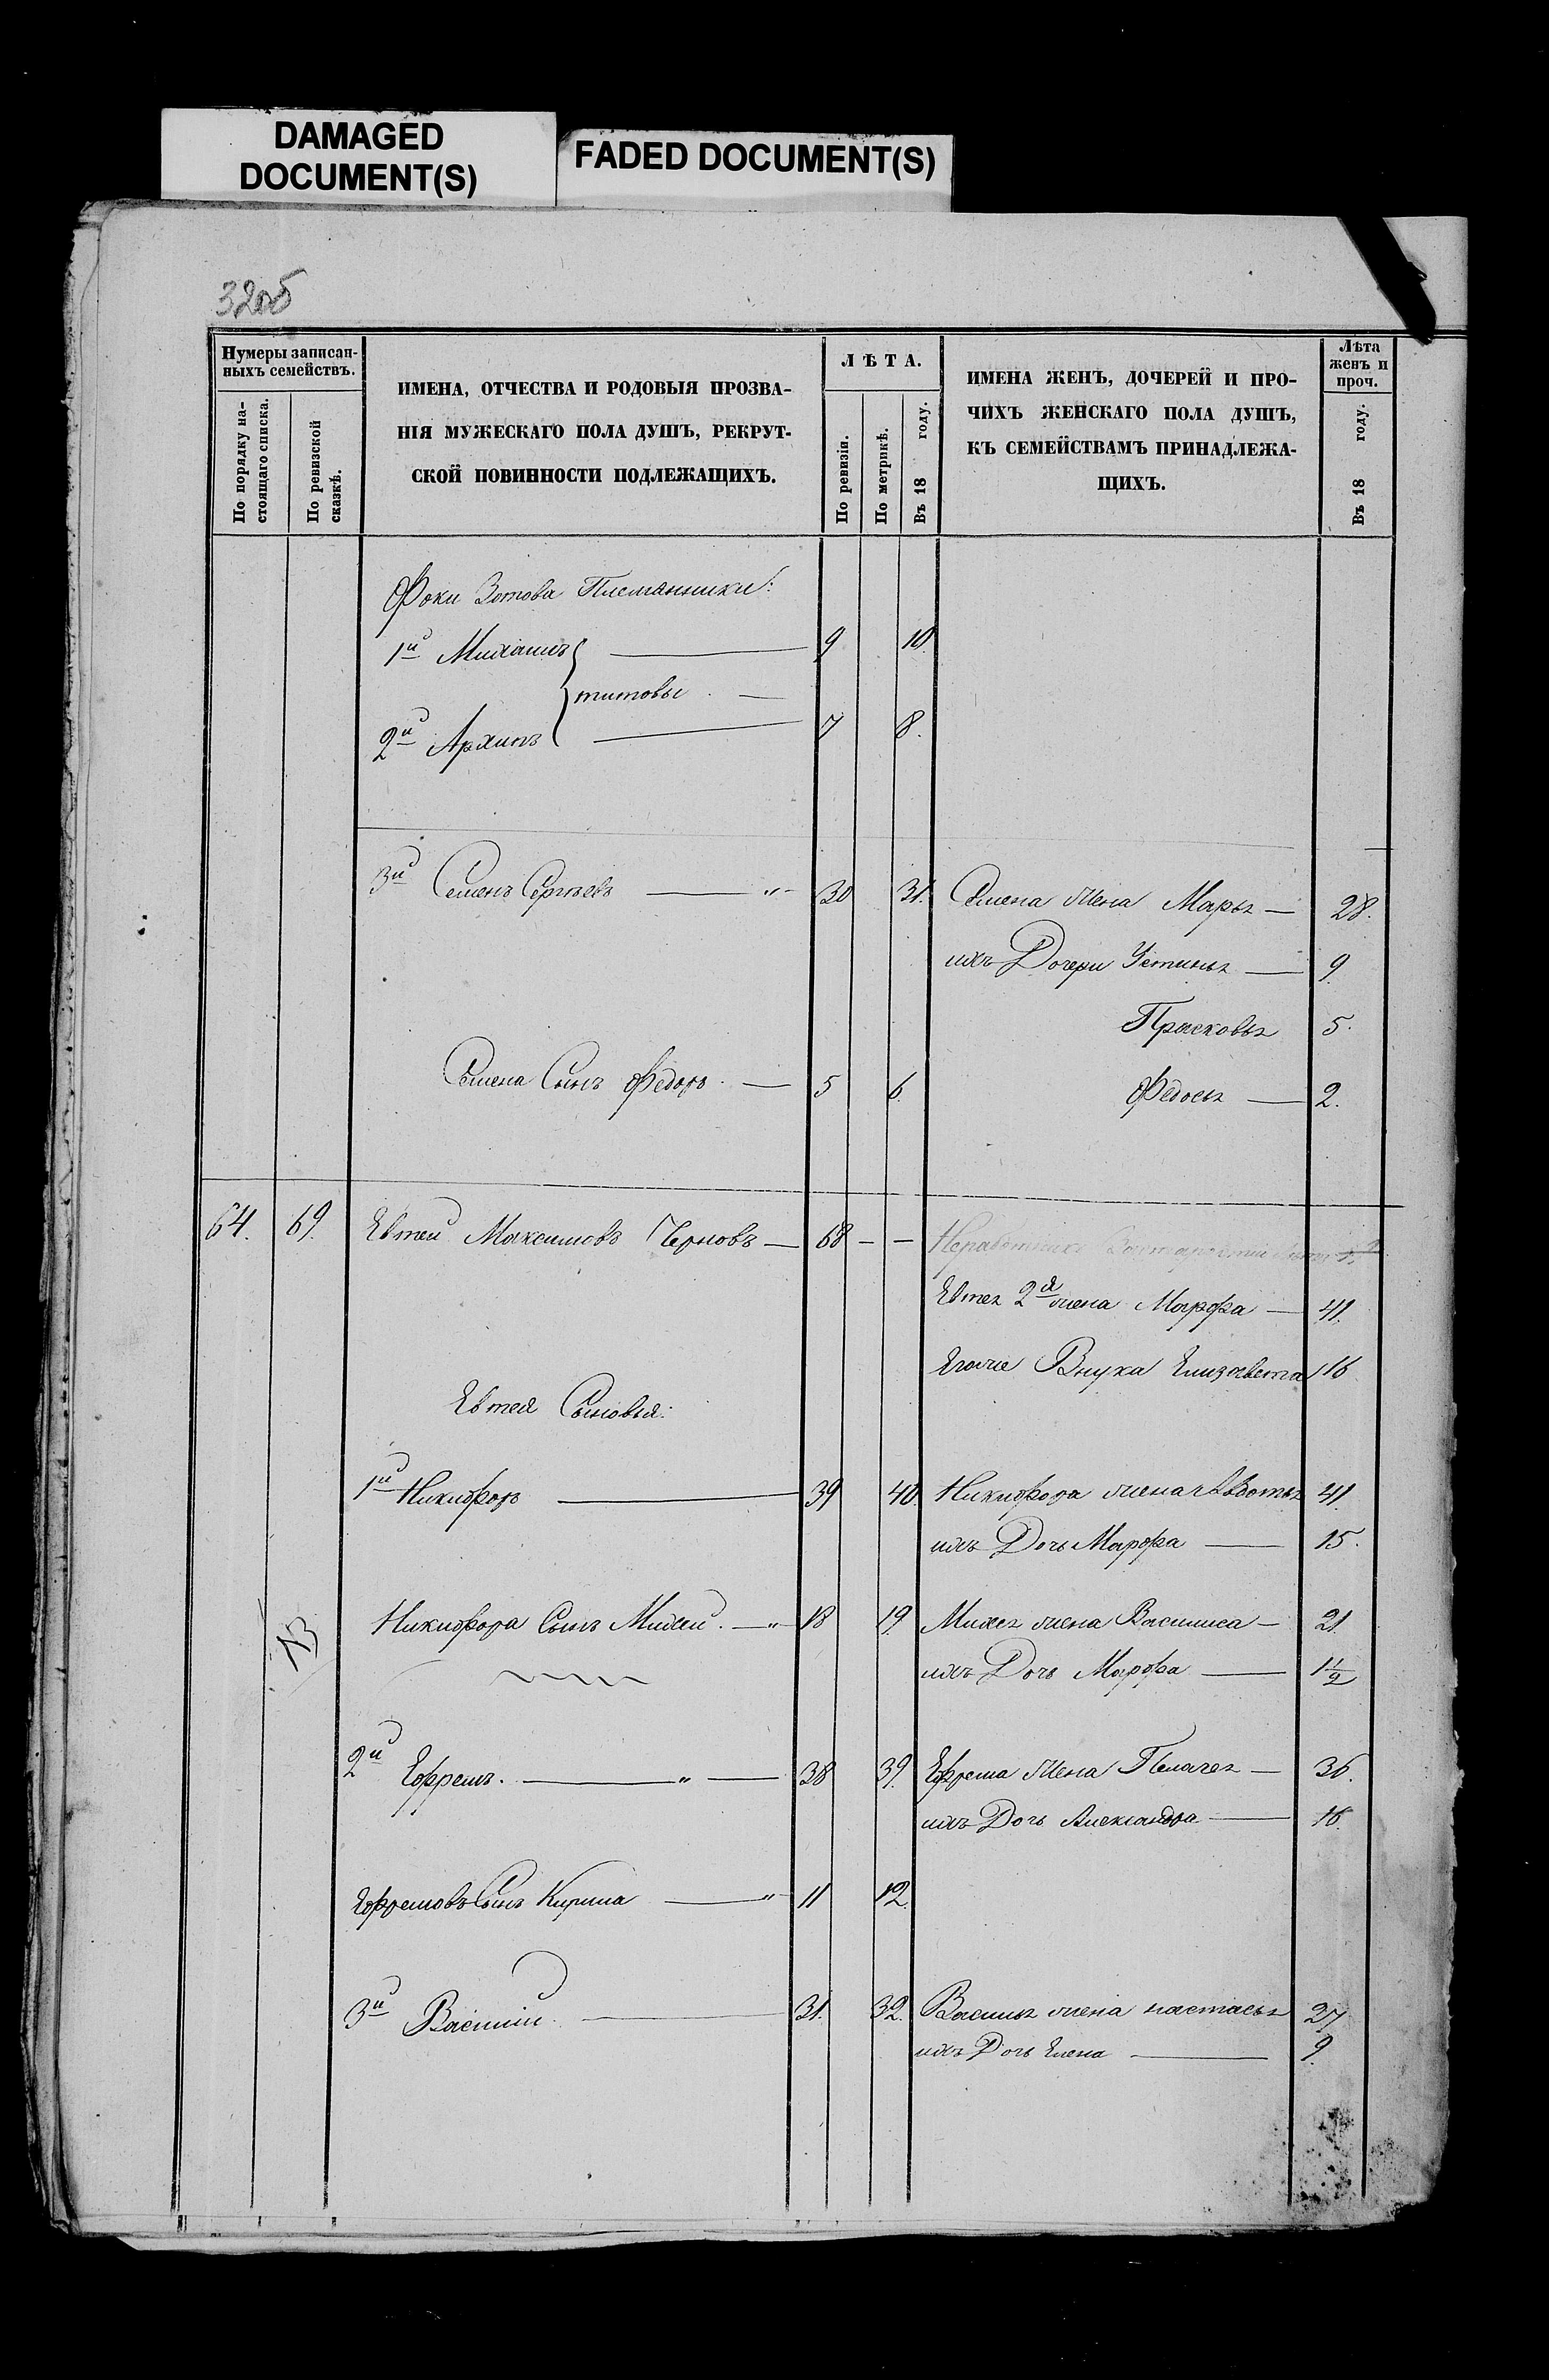 DAMAGED
DOCUMENT(S)
FADED DOCUMENT(S)
32об
Нумеры записан-
ныхъ семействъ.
По порядку на-
стоящаго списка.
По ревизской
сказкѣ.
ИМЕНА, ОТЧЕСТВА И РОДОВЫЯ ПРОЗВА-
НІЯ МУЖЕСКАГО ПОЛА ДУШЪ, РЕКРУТ-
СКОЙ ПОВИННОСТИ ПОДЛЕЖАЩИХЪ.
ЛѢТА.
По ревизіи.
По метрикѣ.
Въ 18 году.
ИМЕНА ЖЕНЪ, ДОЧЕРЕЙ И ПРО-
ЧИХЪ ЖЕНСКАГО ПОЛА ДУШЪ,
КЪ СЕМЕЙСТВАМЪ ПРИНАДЛЕЖА-
ЩИХЪ.
Лѣта
женъ и
проч.
Въ 18 году.
Фоки Зотова Племянники:
1й Михаилъ — 9 10.
титовы. —
2й Архипъ — 7 8.
3й Семенъ Сергѣевъ — " 30 31. Семена жена Марья — 28.
ихъ Дочери Устинья — 9.
Прасковья 5.
Семена Сынъ Федоръ. — 5 6. Федосья — 2.
64. 69. Евтей Максимовъ Черновъ — 68 — —
Евтея 2я жена Марфа — 41.
Егоже Внука Елизавета 16
Евтея Сыновья:
1й Никифоръ — 39 40. Никифора жена Авдотья 41.
ихъ Дочь Марфа — 15.
№ Никифора Сынъ Михей. — " 18 19. Михея жена Василиса — 21.
ихъ Дочь Марфа — 1½
2й Ефремъ. — " — 38 39. Ефрема жена Пелагея — 36.
ихъ Дочь Александра — 16.
Ефремовъ Сынъ Кирила — " 11 12.
3й Василій. — 31. 32. Василья жена настасья 27.
ихъ Дочь Елена — 9.